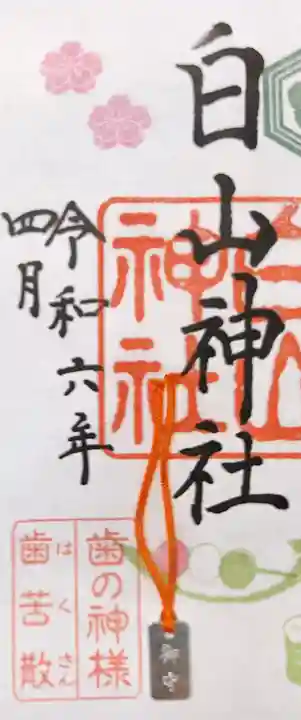 白山神社
神社
令和六年
四月
歯の神様
歯苦散
はくさん
御守